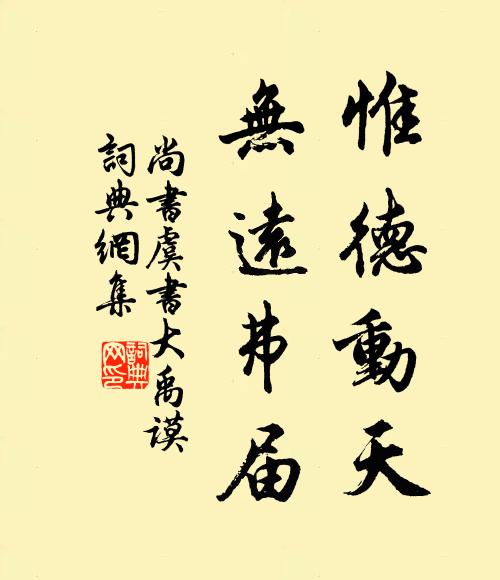 惟德動天
無遠弗届
尚書虞書大禹謨
詞典網集
詞典網印